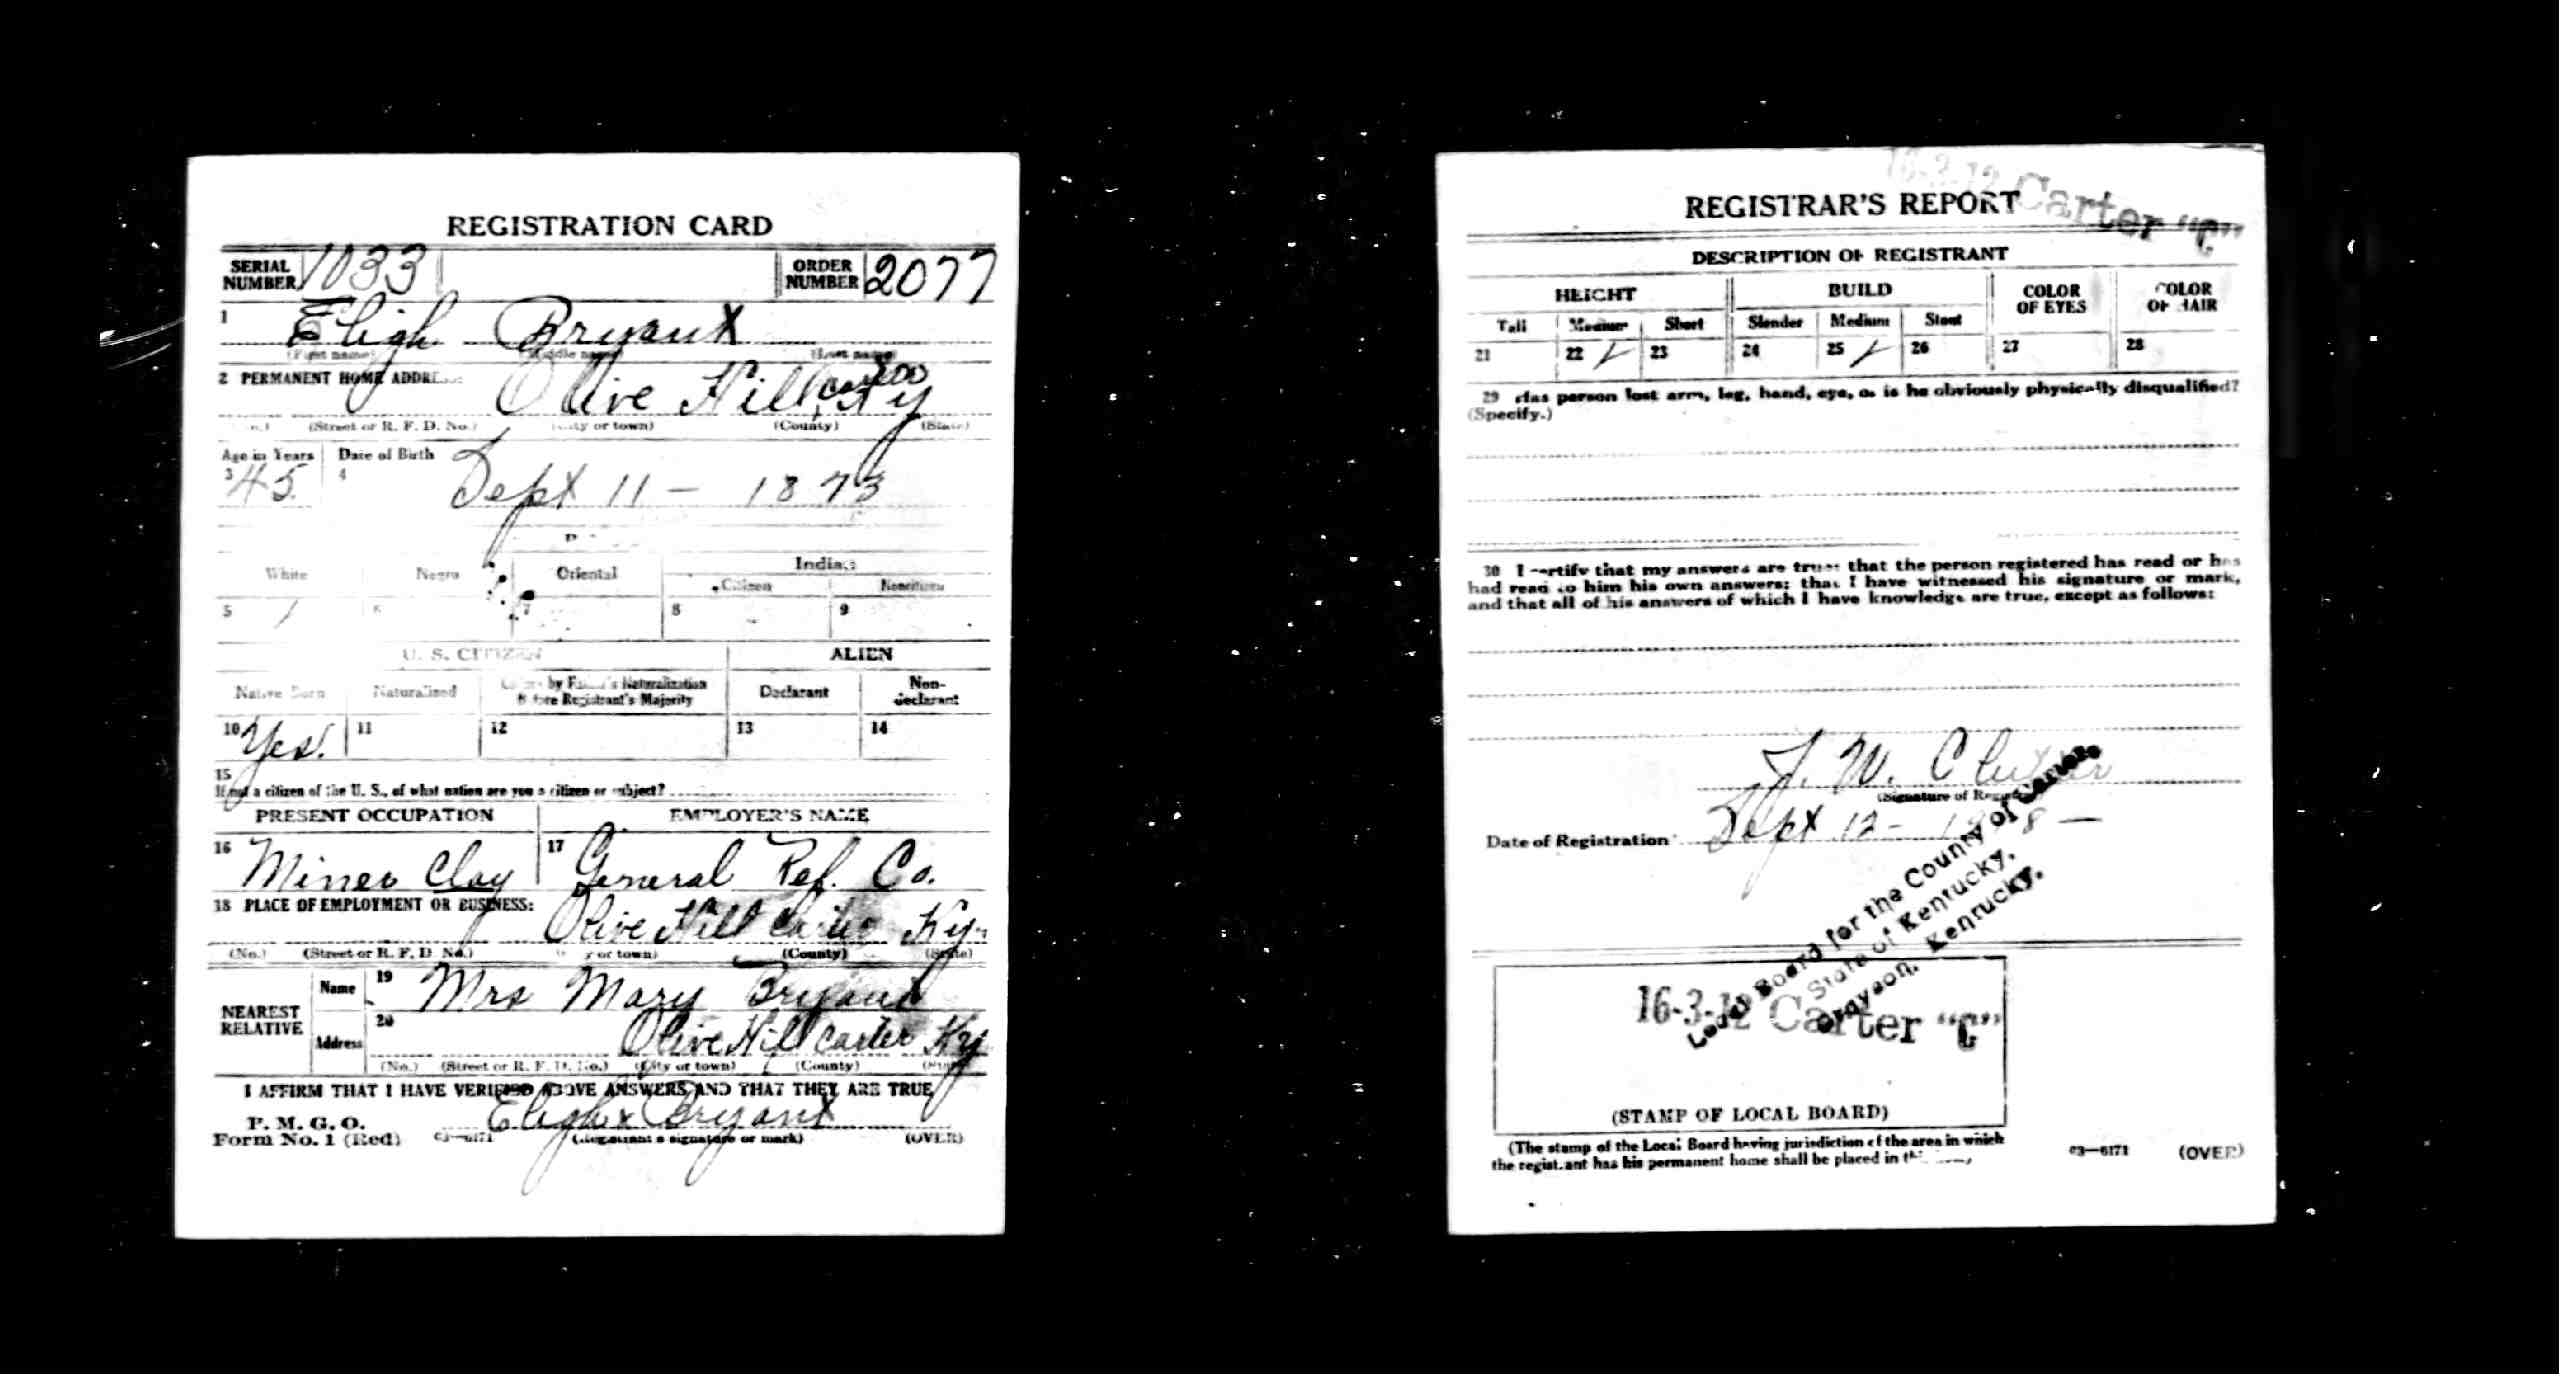 REGISTRATION CARD
SERIAL NUMBER 1033 ORDER NUMBER 2077
1 Eligh Bryant
(First name) (Middle name) (Last name)
2 PERMANENT HOME ADDRESS: Olive Hill Carter Ky
(No.) (Street or R. F. D. No.) (City or town) (County) (State)
Age in Years Date of Birth
3 45 4 Sept 11 - 1873
White Negro Oriental Indian
Citizen Noncitizen
5 / 6 7 8 9
U. S. CITIZEN ALIEN
Native Born Naturalized Citizen by Father's Naturalization Before Registrant's Majority Declarant Non-declarant
10 Yes. 11 12 13 14
15
If not a citizen of the U. S., of what nation are you a citizen or subject?
PRESENT OCCUPATION EMPLOYER'S NAME
16 Miner Clay 17 General Ref. Co.
18 PLACE OF EMPLOYMENT OR BUSINESS: Olive Hill Carter Ky.
(No.) (Street or R. F. D. No.) (City or town) (County) (State)
NEAREST RELATIVE
Name 19 Mrs Mary Bryant
Address 20 Olive Hill Carter Ky
(No.) (Street or R. F. D. No.) (City or town) (County) (State)
I AFFIRM THAT I HAVE VERIFIED ABOVE ANSWERS AND THAT THEY ARE TRUE
P. M. G. O.
Form No. 1 (Red) 03—6171 Eligh x Bryant
(Registrant's signature or mark) (OVER)
16-3-12 Carter "C"
REGISTRAR'S REPORT
DESCRIPTION OF REGISTRANT
HEIGHT BUILD COLOR OF EYES COLOR OF HAIR
Tall Medium Short Slender Medium Stout
21 22 / 23 24 25 / 26 27 28
29 Has person lost arm, leg, hand, eye, or is he obviously physically disqualified?
(Specify.)
30 I certify that my answers are true; that the person registered has read or has
had read to him his own answers; that I have witnessed his signature or mark,
and that all of his answers of which I have knowledge are true, except as follows:
(Signature of Registrar)
Date of Registration Sept 12 - 1918 —
Local Board for the County of Carter
State of Kentucky,
Grayson, Kentucky.
16-3-12 Carter "C"
(STAMP OF LOCAL BOARD)
(The stamp of the Local Board having jurisdiction of the area in which
the registrant has his permanent home shall be placed in this
03—6171 (OVER)